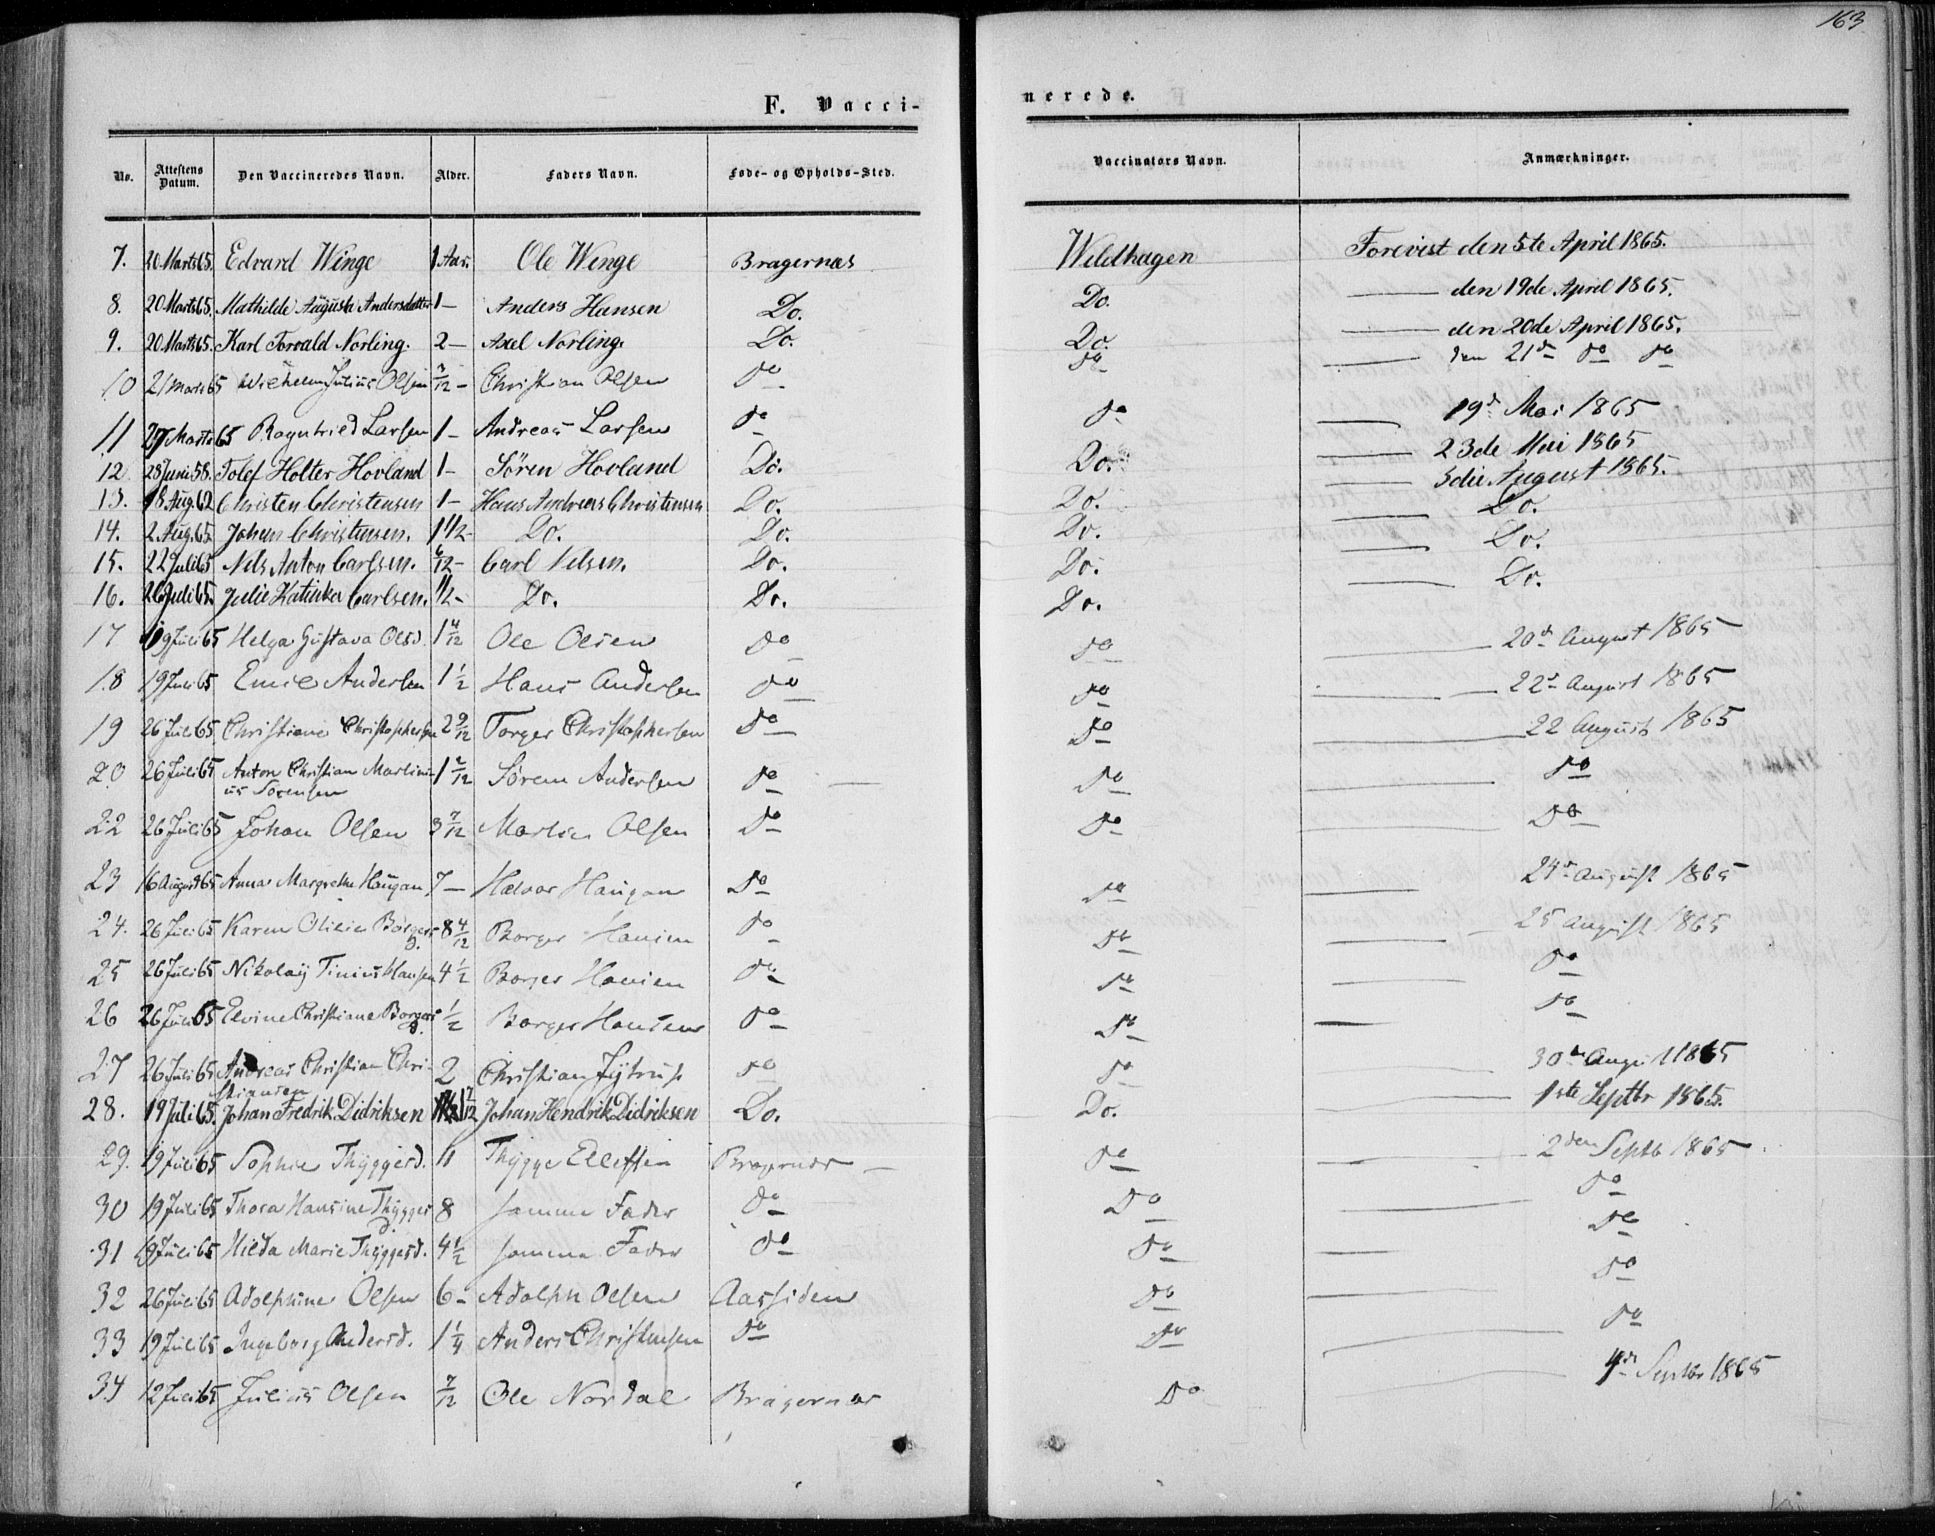 163
F. Vacci-
nerede.
No. Attestens Datum. Den Vaccineredes Navn. Alder. Faders Navn. Føde- og Opholds-Sted. Vaccinators Navn. Anmærkninger.
7. 20 Marts 65. Edvard Winge 1 Aar. Ole Winge Bragernæs Wildhagen Forevist den 5te April 1865.
8. 20 Marts 65. Mathilde Augusta Andersdatter 1 — Anders Hansen Do. Do. — den 19de April 1865.
9. 20 Marts 65. Karl Torvald Norling. 2 — Axel Norling. Do. Do. — den 20de April 1865.
10 21 Marts 65 Wilhelm Julius Olsen 7/12 — Christian Olsen Do Do — den 21de Do Do
11 27 Marts 65 Ragnhild Larsen 1 — Andreas Larsen Do Do — 19de Mai 1865
12 28 Juni 58. Tolef Holter Hovland 1 — Søren Hovland Do. Do. — 23de Mai 1865
13. 18 Aug. 62 Christen Christensen 1 — Hans Andreas Christensen Do. Do. — 3die August 1865.
14. 2 Aug. 65 Johan Christensen. 1 1/2 — Do. Do. Do. — Do.
15. 22 Juli 65 Nels Anton Carlsen. 6/12 — Carl Nelsen. Do. Do. — Do.
16. 26 Juli 65. Julie Katinka Carlsen. 1/2 — Do. Do. Do. — Do.
17 19 Juli 65 Helga Gustava Olsd. 1 4/12 Ole Olsen Do Do — 20de August 1865
18 19 Juli 65 Emil Andersen 1 1/2 Hans Andersen Do Do — 22de August 1865
19 26 Juli 65 Christiane Christophersen 2 9/12 Torger Christophersen Do Do — 22 August 1865
20 26 Juli 65 Anton Christian Martini- 1 2/12 Søren Andersen Do — Do — Do
us Sørensen
22 26 Juli 65 Johan Olsen 3 7/12 Martin Olsen Do Do Do
23 16 August 65 Anna Margrethe Haugan 7 — Halvor Haugan Do Do — 24de August 1865
24. 26 Juli 65 Karen Olivia Borgers 8 4/12 Borger Hansen Do Do — 25 August 1865
D.
25 26 Juli 65 Nikolaij Tinius Hansen 4 1/2 Borger Hansen Do Do — Do
26 26 Juli 65 Elvine Christiane Borgers 1/2 Borger Hansen Do Do — Do
D.
27 26 Juli 65 Andreas Christian Chri- 2 Christian Do Do — 30de August 1865
stiansen
28. 19 Juli 65. Johan Fredrik Didriksen 1 7/12 Johan Hendrik Didriksen Do. Do. — 1ste Septbr 1865.
29. 19 Juli 65 Sophie Thyggesd. 11 Thygge Ellefsen Bragernæs — Do — 2den Septb 1865
30 19 Juli 65 Thora Hansine Thygges 8 samme Fader Do Do — Do
d.
31 19 Juli 65 Hilda Marie Thyggesd. 4 1/2 samme Fader Do Do — Do
32 26 Juli 65 Adolphine Olsen 6 — Adolph Olsen Aassiden Do — Do
33 19 Juli 65 Ingeborg Andersd. 1 1/4 Anders Christensen Do Do — Do
34 12 Juli 65 Julius Olsen 7/12 Ole Nordal Bragernæs Do — 4de Septbr 1865